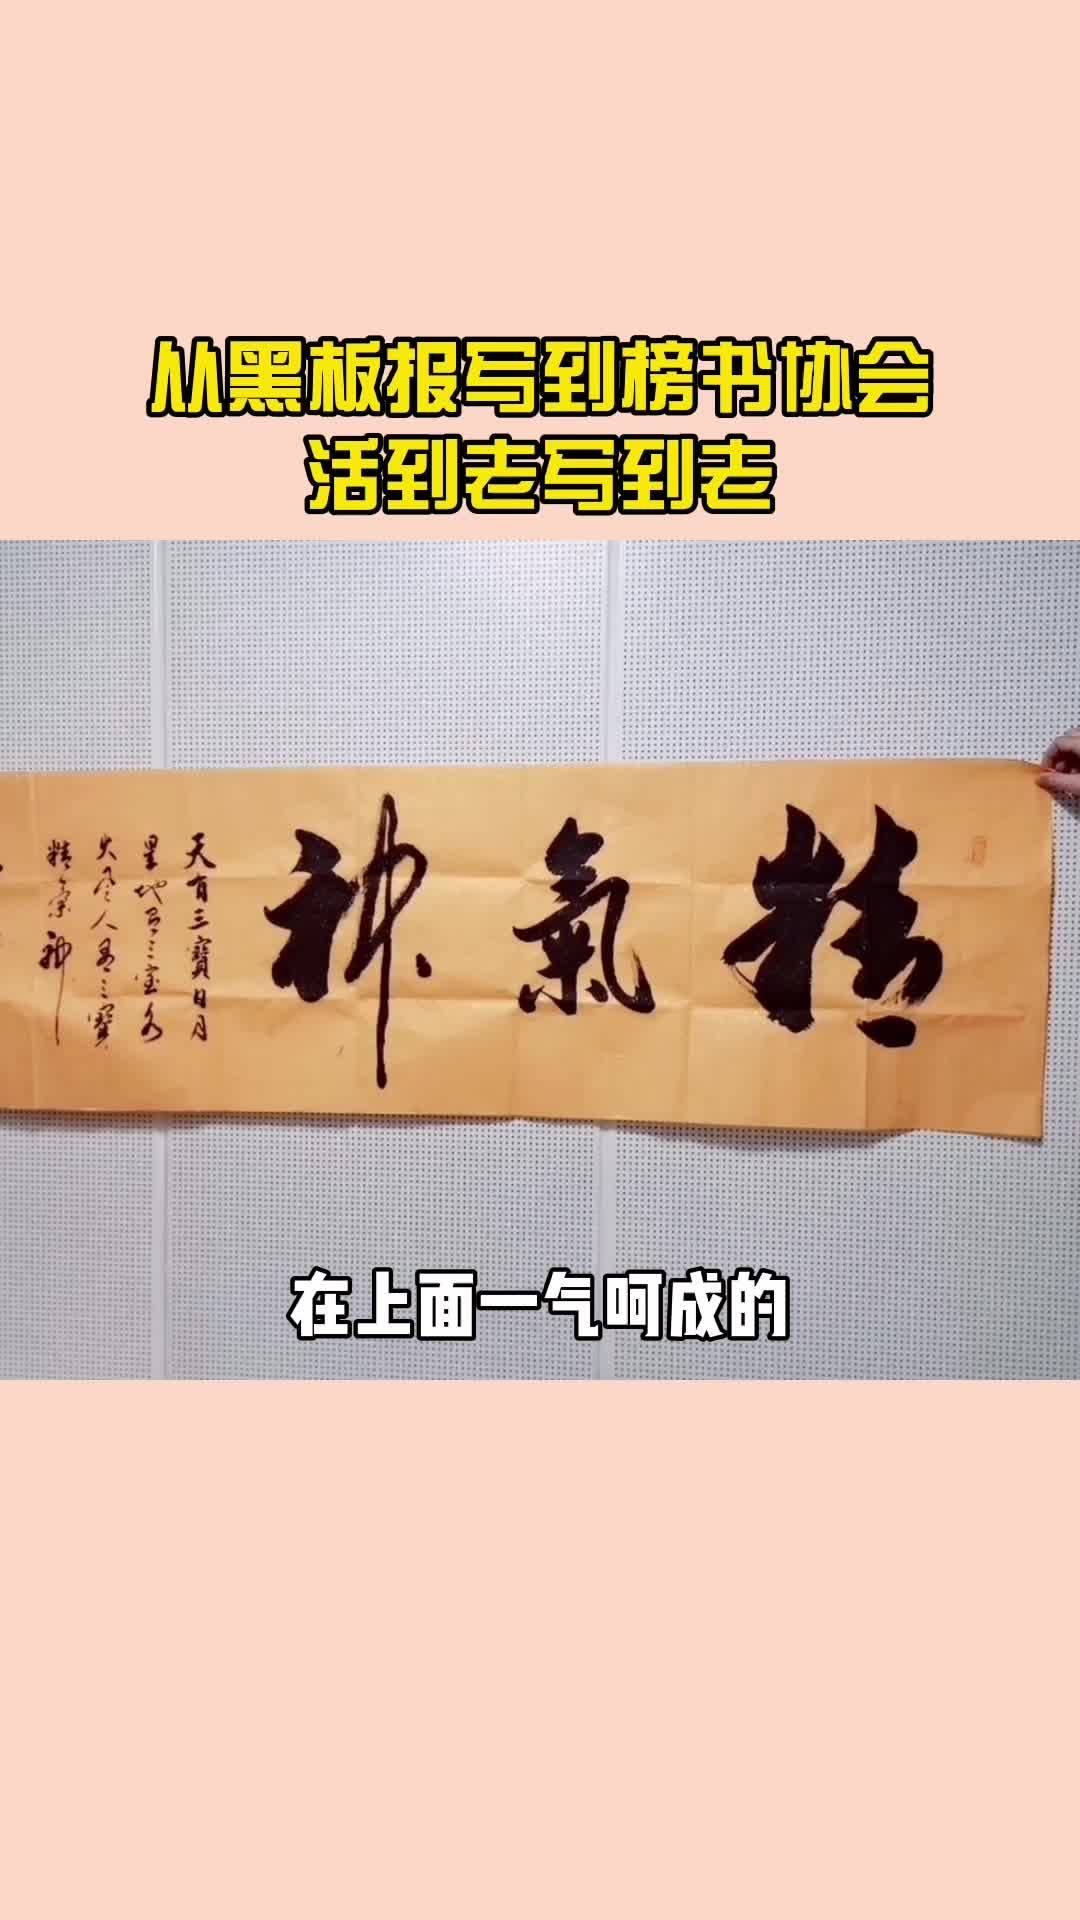 从黑板报写到榜书协会
活到老写到老
精氣神
天有三寶日月
星地有三宝水
火风人有三寶
精氣神
在上面一气呵成的